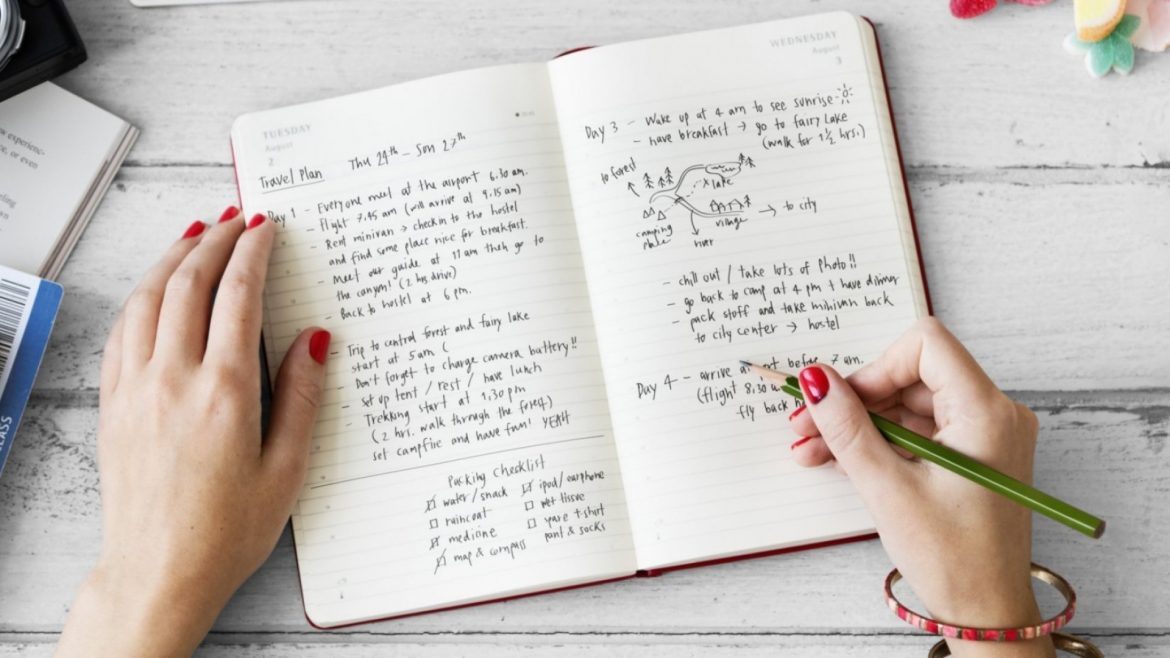 w experienc-
ce, or even
CLASS
TUESDAY
August
2
Travel Plan Thu 24th - Sun 27th
Day 1 - Everyone meet at the airport 6.30 am.
- Flight 7.45 am (will arrive at 9.15 am)
- Rent minivan → check in to the hostel
and find some place nice for breakfast.
- Meet our guide at 11 am then go to
the canyon! (2 hrs drive)
- Back to hostel at 6 pm.
- Trip to central forest and fairy lake
start at 5 am (
- Don't forget to charge camera buttery!!
- set up tent / rest / have lunch
- Trekking start at 1.30 pm
(2 hrs. walk through the forest)
set campfire and have fun! YEAH
Packing Checklist
water / snack
raincoat
medicine
map & compass
ipod / earphone
wet tissue
spare t-shirt
pant & socks
WEDNESDAY
August
3
Day 3 - Wake up at 4 am to see sunrise
- have breakfast → go to fairy lake
(walk for 1½ hrs.)
to forest
x lake
camping
place
village
→ to city
river
- chill out / take lots of photo!!
- go back to camp at 4 pm + have dinner
- pack stuff and take minivan back
to city center → hostel
Day 4 - arrive before 7 am.
(flight 8.30
fly back